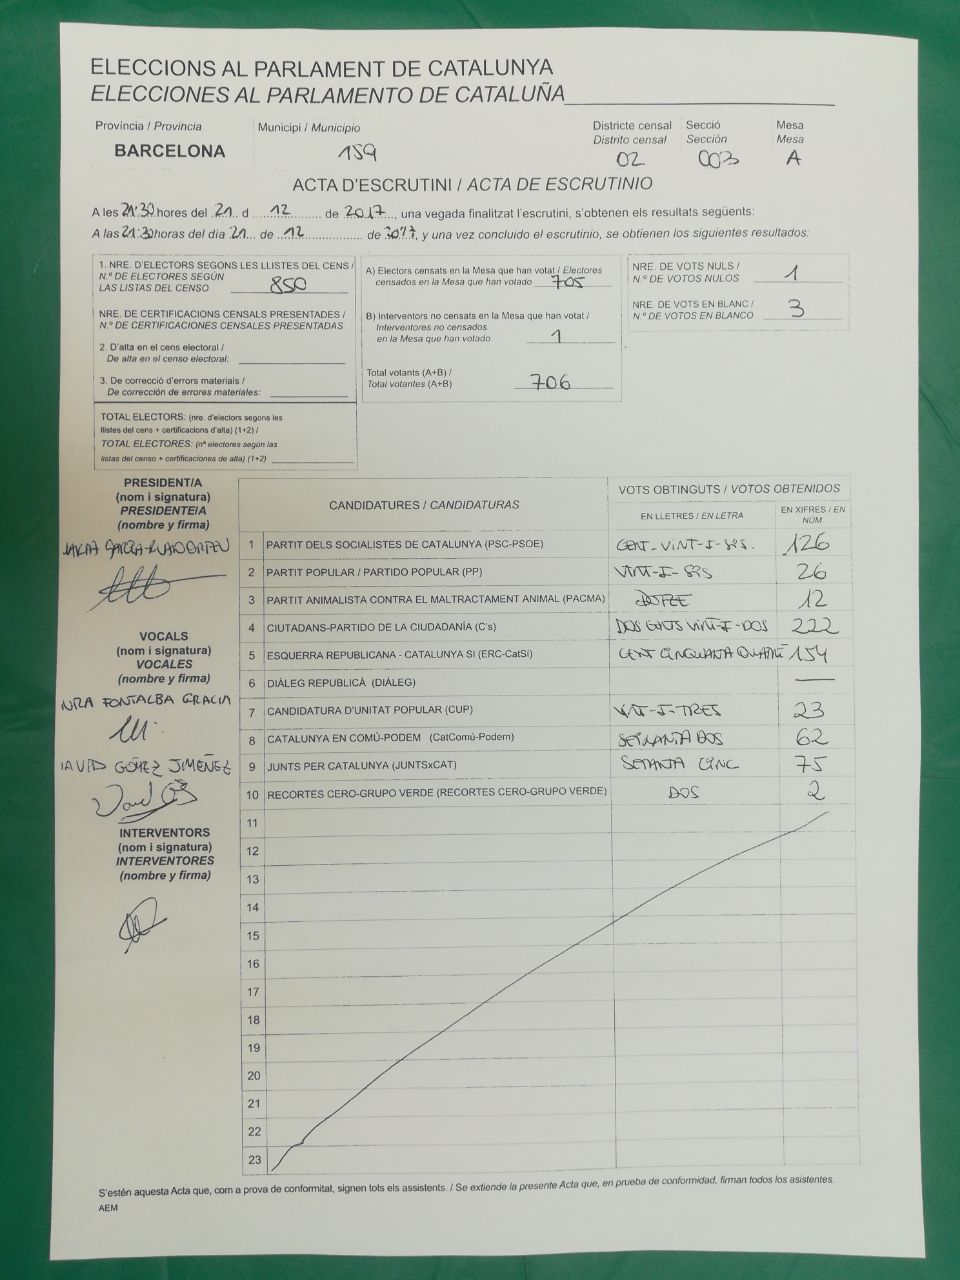 ELECCIONS AL PARLAMENT DE CATALUNYA
ELECCIONES AL PARLAMENTO DE CATALUÑA
Província / Provincia
BARCELONA
Municipi / Municipio
159
Districte censal
Distrito censal
02
Secció
Sección
003
Mesa
Mesa
A
ACTA D'ESCRUTINI / ACTA DE ESCRUTINIO
A les 21:30 hores del 21 d 12 de 2017, una vegada finalitzat l'escrutini, s'obtenen els resultats següents:
A las 21:30 horas del día 21 de 12 de 2017, y una vez concluido el escrutinio, se obtienen los siguientes resultados:
1. NRE. D'ELECTORS SEGONS LES LLISTES DEL CENS /
N.º DE ELECTORES SEGÚN
LAS LISTAS DEL CENSO 850
NRE. DE CERTIFICACIONS CENSALS PRESENTADES /
N.º DE CERTIFICACIONES CENSALES PRESENTADAS
2. D'alta en el cens electoral /
De alta en el censo electoral:
3. De correcció d'errors materials /
De corrección de errores materiales:
TOTAL ELECTORS: (nre. d'electors segons les
llistes del cens + certificacions d'alta) (1+2) /
TOTAL ELECTORES: (nº electores según las
listas del censo + certificaciones de alta) (1+2)
A) Electors censats en la Mesa que han votat / Electores
censados en la Mesa que han votado 705
B) Interventors no censats en la Mesa que han votat /
Interventores no censados
en la Mesa que han votado 1
Total votants (A+B) /
Total votantes (A+B) 706
NRE. DE VOTS NULS /
N.º DE VOTOS NULOS 1
NRE. DE VOTS EN BLANC /
N.º DE VOTOS EN BLANCO 3
PRESIDENT/A
(nom i signatura)
PRESIDENTE/A
(nombre y firma)
VOCALS
(nom i signatura)
VOCALES
(nombre y firma)
FONTALBA GRACIA
DAVID GÓMEZ JIMÉNEZ
INTERVENTORS
(nom i signatura)
INTERVENTORES
(nombre y firma)
CANDIDATURES / CANDIDATURAS
VOTS OBTINGUTS / VOTOS OBTENIDOS
EN LLETRES / EN LETRA
EN XIFRES / EN NÚM.
1 PARTIT DELS SOCIALISTES DE CATALUNYA (PSC-PSOE) CENT-VINT-I-SIS. 126
2 PARTIT POPULAR / PARTIDO POPULAR (PP) VINT-I-SIS 26
3 PARTIT ANIMALISTA CONTRA EL MALTRACTAMENT ANIMAL (PACMA) DOTZE 12
4 CIUTADANS-PARTIDO DE LA CIUDADANÍA (C's) DOS CENTS VINT-I-DOS 222
5 ESQUERRA REPUBLICANA - CATALUNYA SI (ERC-CatSí) CENT CINQUANTA QUATRE 154
6 DIÀLEG REPUBLICÀ (DIÀLEG) —
7 CANDIDATURA D'UNITAT POPULAR (CUP) VINT-I-TRES 23
8 CATALUNYA EN COMÚ-PODEM (CatComú-Podem) SEIXANTA DOS 62
9 JUNTS PER CATALUNYA (JUNTSxCAT) SETANTA CINC 75
10 RECORTES CERO-GRUPO VERDE (RECORTES CERO-GRUPO VERDE) DOS 2
11
12
13
14
15
16
17
18
19
20
21
22
23
S'estén aquesta Acta que, com a prova de conformitat, signen tots els assistents. / Se extiende la presente Acta que, en prueba de conformidad, firman todos los asistentes.
AEM